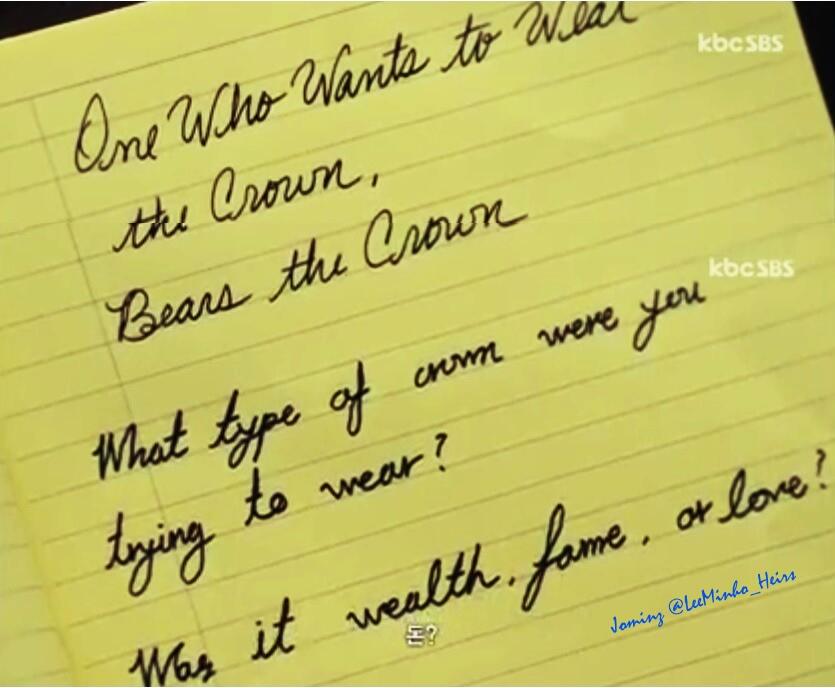 One Who Wants to Wear
kbc SBS
the Crown,
Bears the Crown
kbc SBS
What type of crown were you
trying to wear?
Was it wealth, fame, or love?
돈?
Jominz @LeeMinho_Heirs